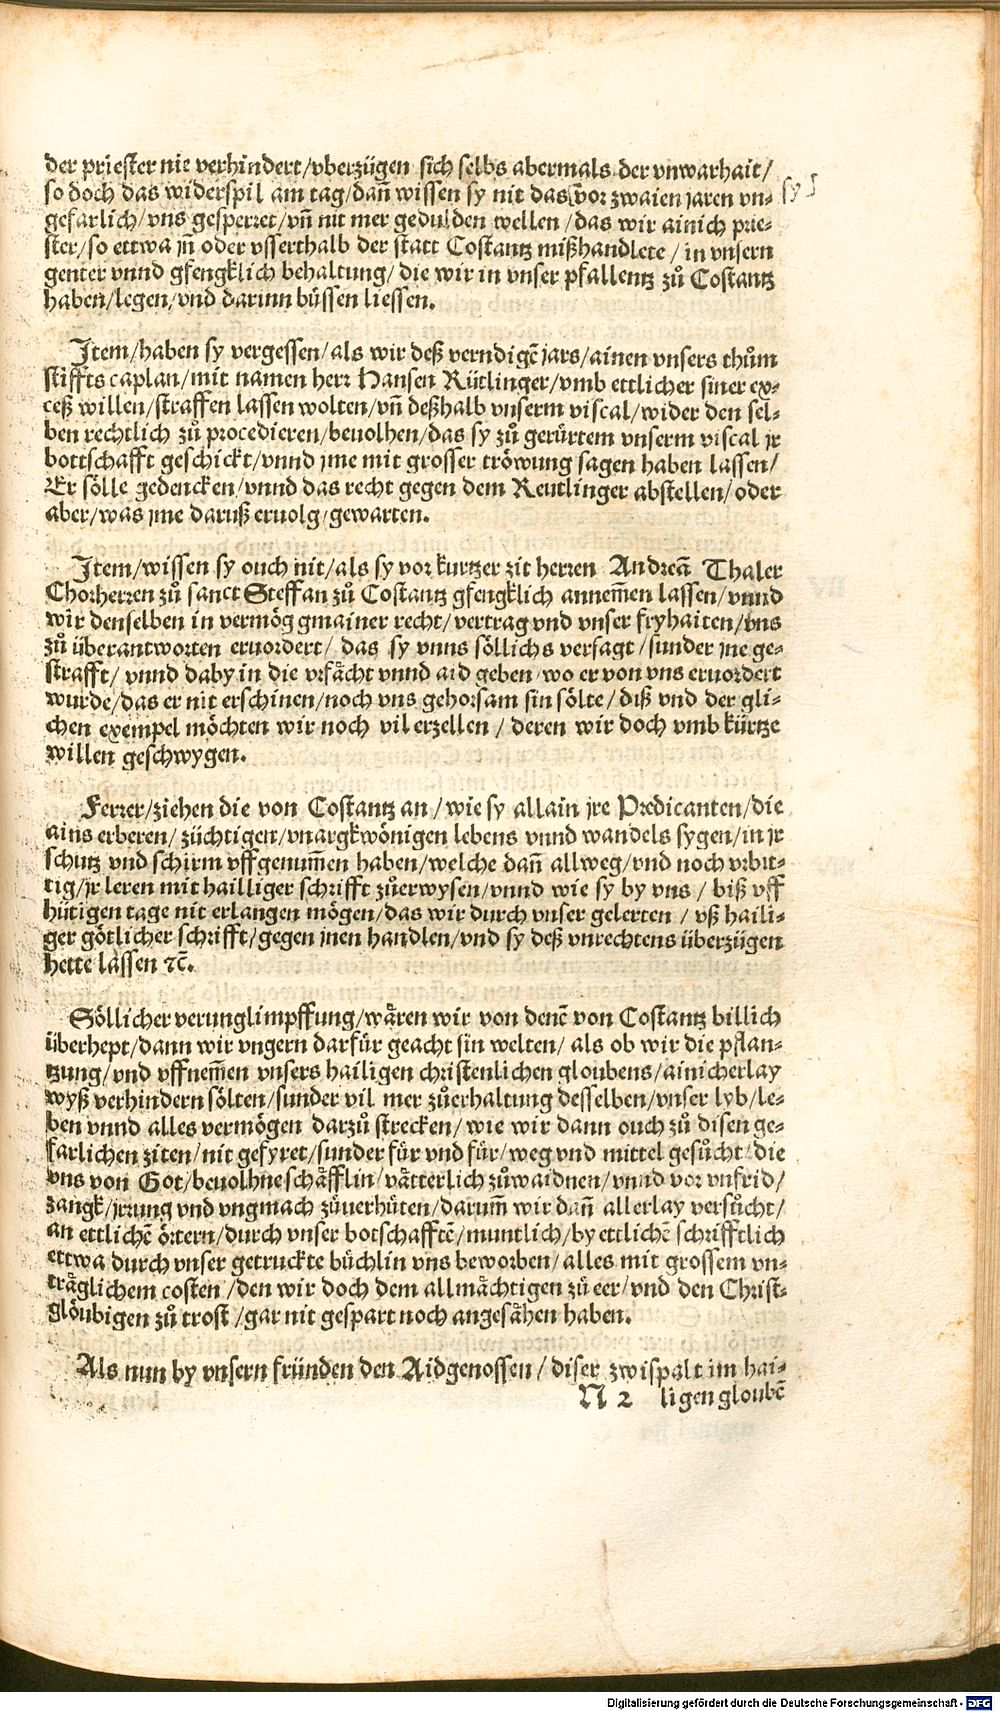 der priester nie verhindert/vberzügen sich selbs abermals der vnwarhait/
so doch das widerspil am tag/dañ wissen sy nit das vor zwaien jaren vn⸗ sy
gefarlich/vns gesperret/vñ nit mer gedulden wellen/das wir ainich prie⸗
ster/so ettwa jñ oder vsserthalb der statt Costantz mißhandlete/in vnsern
genter vnnd gfengklich behaltung/die wir in vnser pfallentz zů Costantz
haben/legen/vnd darinn büssen liessen.
Item/haben sy vergessen/als wir deß verndigẽ jars/ainen vnsers thům
stiffts caplan/mit namen herr Hansen Rütlinger/vmb ettlicher siner ex⸗
ceß willen/straffen lassen wolten/vñ deßhalb vnserm viscal/wider den sel⸗
ben rechtlich zů procedieren/beuolhen/das sy zů gerürtem vnserm viscal jr
bottschafft geschickt/vnnd jme mit grosser tröwung sagen haben lassen/
Er sölle gedencken/vnnd das recht gegen dem Reutlinger abstellen/oder
aber/was jme daruß eruolg/gewarten.
Item/wissen sy ouch nit/als sy vor kurtzer zit herren Andreã Thaler
Chorherren zů sanct Steffan zů Costantz gfengklich annem̃en lassen/vnnd
wir denselben in vermög gmainer recht/vertrag vnd vnser fryhaiten/vns
zů überantworten eruordert/das sy vnns söllichs versagt/sunder jne ge⸗
strafft/vnnd daby in die vrfächt vnnd aid geben/wo er von vns eruordert
wurde/das er nit erschinen/noch vns gehorsam sin sölte/diß vnd der gli⸗
chen exempel möchten wir noch vil erzellen/deren wir doch vmb kürtze
willen geschwygen.
Ferrer/ziehen die von Costantz an/wie sy allain jre Predicanten/die
ains erberen/züchtigen/vnargkwönigen lebens vnnd wandels sygen/in jr
schutz vnd schirm vffgenum̃en haben/welche dañ allweg/vnd noch vrbit⸗
tig/jr leren mit hailliger schrifft zůerwysen/vnnd wie sy by vns/biß vff
hütigen tage nit erlangen mögen/das wir durch vnser gelerten/vß haili⸗
ger götlicher schrifft/gegen jnen handlen/vnd sy deß vnrechtens überzügen
hette lassen ⁊c̃.
Söllicher verunglimpffung/wären wir von denẽ von Costantz billich
überhept/dann wir vngern darfür geacht sin welten/als ob wir die pflan⸗
tzung/vnd vffnem̃en vnsers hailigen christenlichen gloubens/ainicherlay
wyß verhindern sölten/sunder vil mer zůerhaltung desselben/vnser lyb/le⸗
ben vnnd alles vermögen darzů strecken/wie wir dann ouch zů disen ge⸗
farlichen ziten/nit gefyret/sunder für vnd für/weg vnd mittel gesůcht/die
vns von Got/beuolhne schäfflin/vätterlich zůwaidnen/vnnd vor vnfrid/
zangk/jrrung vnd vngmach zůuerhüten/darum̃ wir dañ allerlay versůcht/
an ettlichẽ örtern/durch vnser botschafftẽ/muntlich/by ettlichẽ schrifftlich
ettwa durch vnser getruckte büchlin vns beworben/alles mit grossem vn⸗
träglichem costen/den wir doch dem allmächtigen zů eer/vnd den Christ⸗
glöubigen zů trost/gar nit gespart noch angesähen haben.
Als nun by vnsern fründen den Aidgenossen/diser zwispalt im hai⸗
N 2 ligen gloubẽ
Digitalisierung gefördert durch die Deutsche Forschungsgemeinschaft - DFG